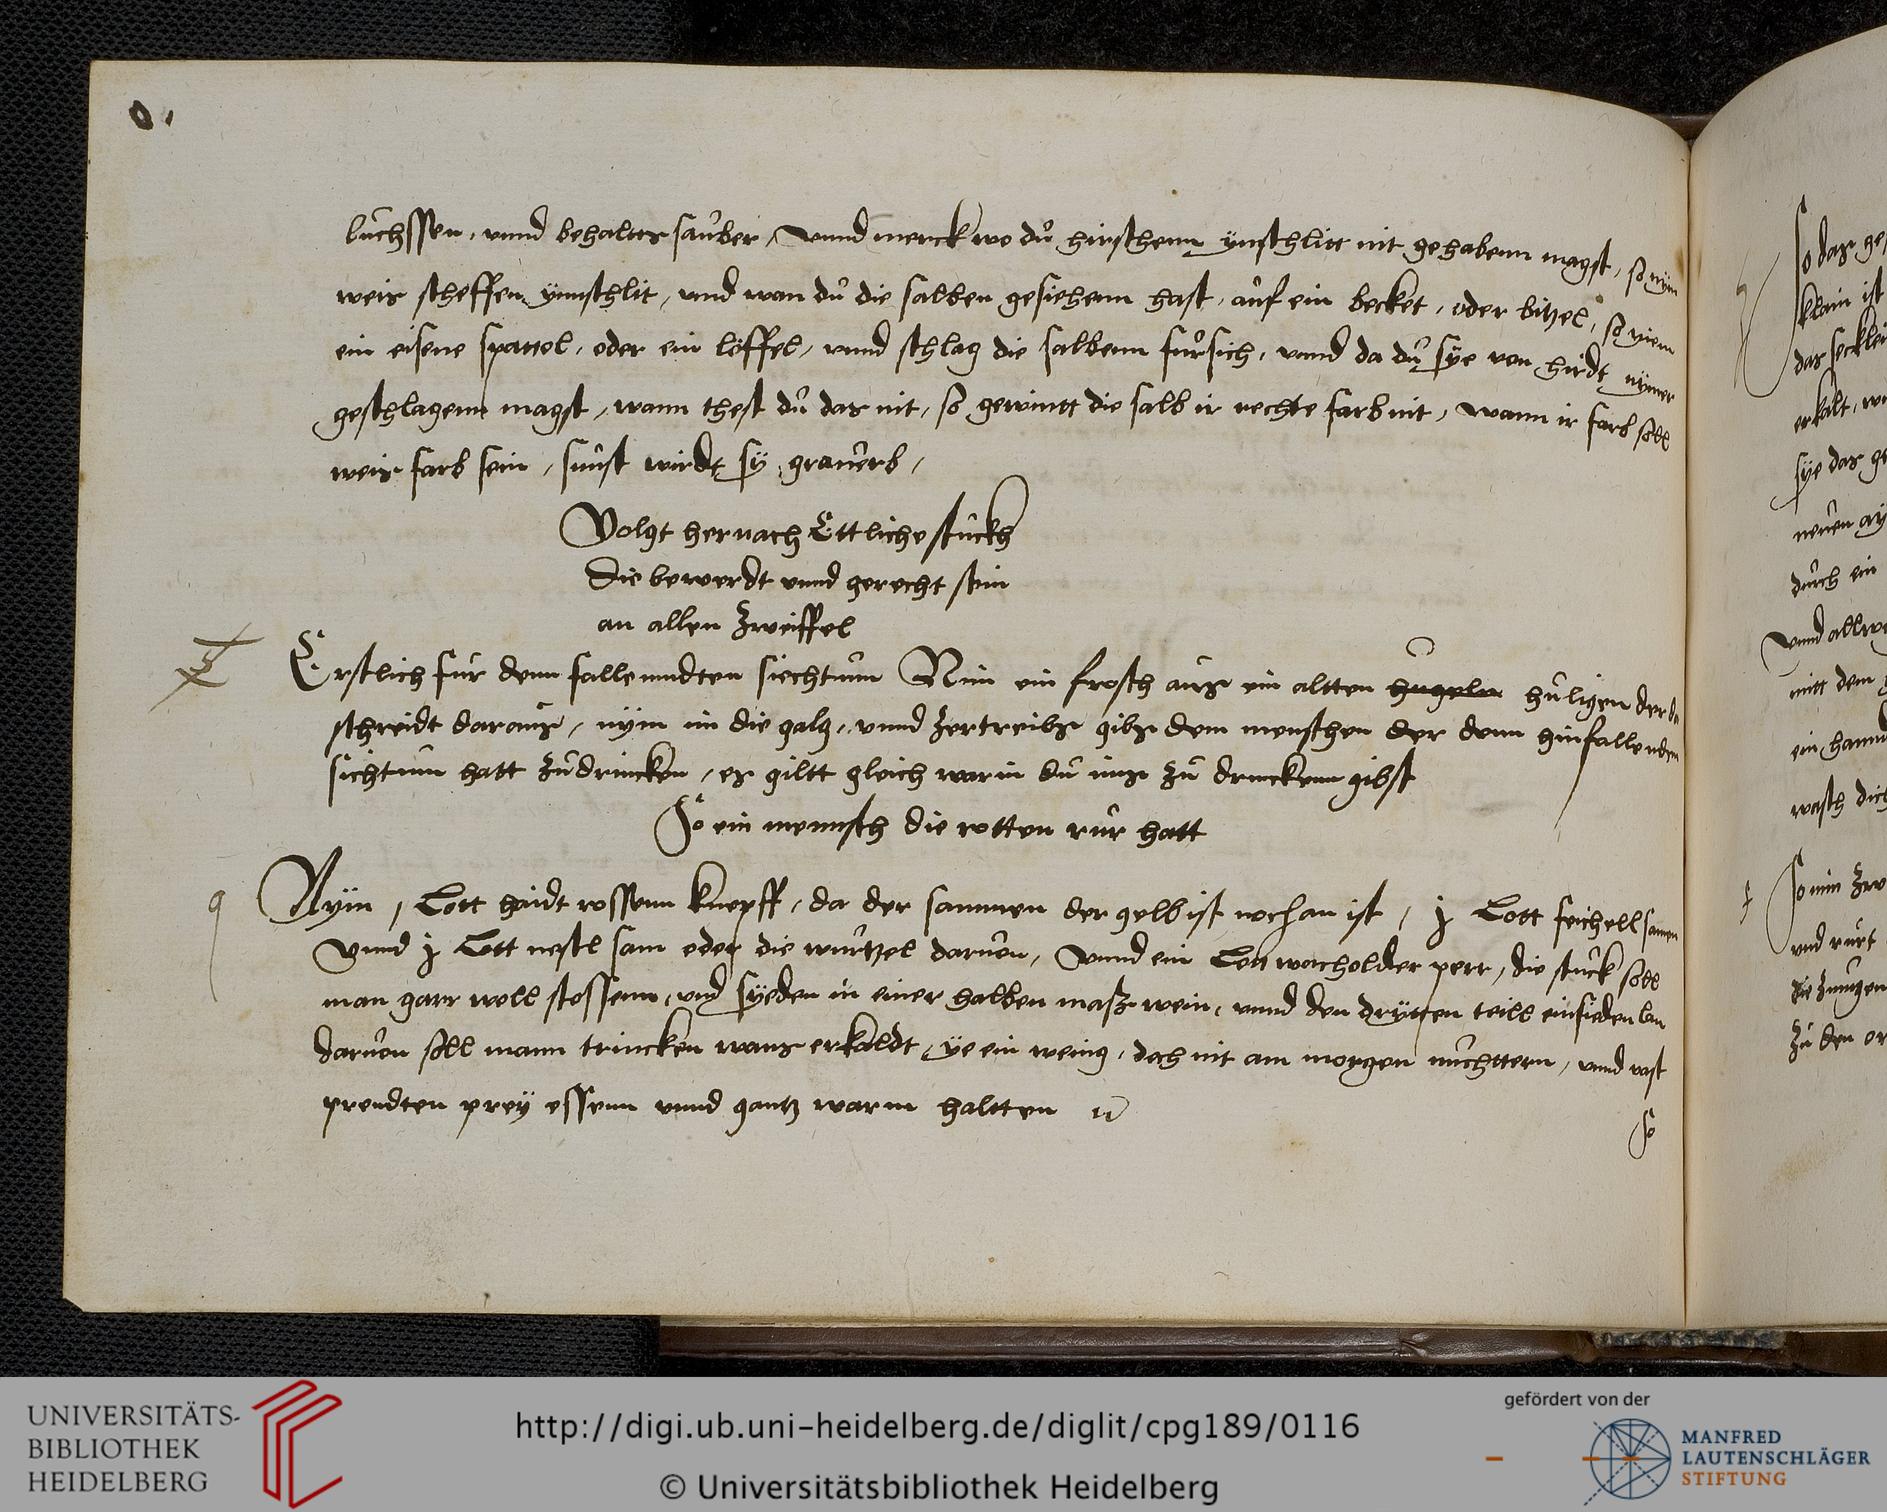 o.
büchssen, vnnd behalts sauber, Vnnd merck wo dů hirschenn ÿnschlitt nit gehabenn magst, so nÿm
weis scheffen ÿnnschlit, vnd wan dů die salben gesiehenn hast, aůf ein becket, oder bitzel, so niem
ein eisene spattel, oder ein löffel, vnnd schlag die salbenn fůrsich, vnnd da dů sÿe von hirdt nÿmer
geschlagenn magst, wann thest dů das nit, so gewintt die salb ir rechte farb nit, wann ir farb soll
weis farb sein, sůnst wirdt sÿ grauerb,
Volgt hernach Ettliche stuckh
die bewerdt vnnd gerecht sein
an allen Zweiffel
Erstlich fůr denn fallenndten siechtum Nim ein frosch aůs ein altten hůligen der da
schreidt daraůs, nÿm im die gals, vnnd zertreibs gibs dem menschen der denn hinfallenden
sichtum hatt zů drincken, es giltt gleich warin dů ims zů drinckenn gibst
So ein mennsch die rotten růr hatt
Nÿm, 1 Lott haidt rossenn knepff, da der sammen der gelb ist noch an ist, j Lott feichell samen
Vnnd j Lott nestl sam oder die wůrtzel daruon, Vnnd ein Lott wacholder perr, die stůck soll
man garr woll stossenn, vnd sÿeden in einer halben mass wein, vnnd den drÿtten teill einsieden lan
daruon soll mann trincken wans erkaldt, ÿe ein wenig, doch nit am morgen nůchttern, vnnd vast
prendten preÿ essenn vnnd gantz warm haltten
So
So das ge
klain ist
das secklei
erkalt, wi
sÿe das ge
neůen
důrch ein
vnnd allwe
mitt dem
ein hannd
wasch dich
So mim zw
vnd růrt
die zungen
zů den or
UNIVERSITÄTS-
BIBLIOTHEK
HEIDELBERG
http://digi.ub.uni-heidelberg.de/diglit/cpg189/0116
© Universitätsbibliothek Heidelberg
gefördert von der
MANFRED
LAUTENSCHLÄGER
STIFTUNG